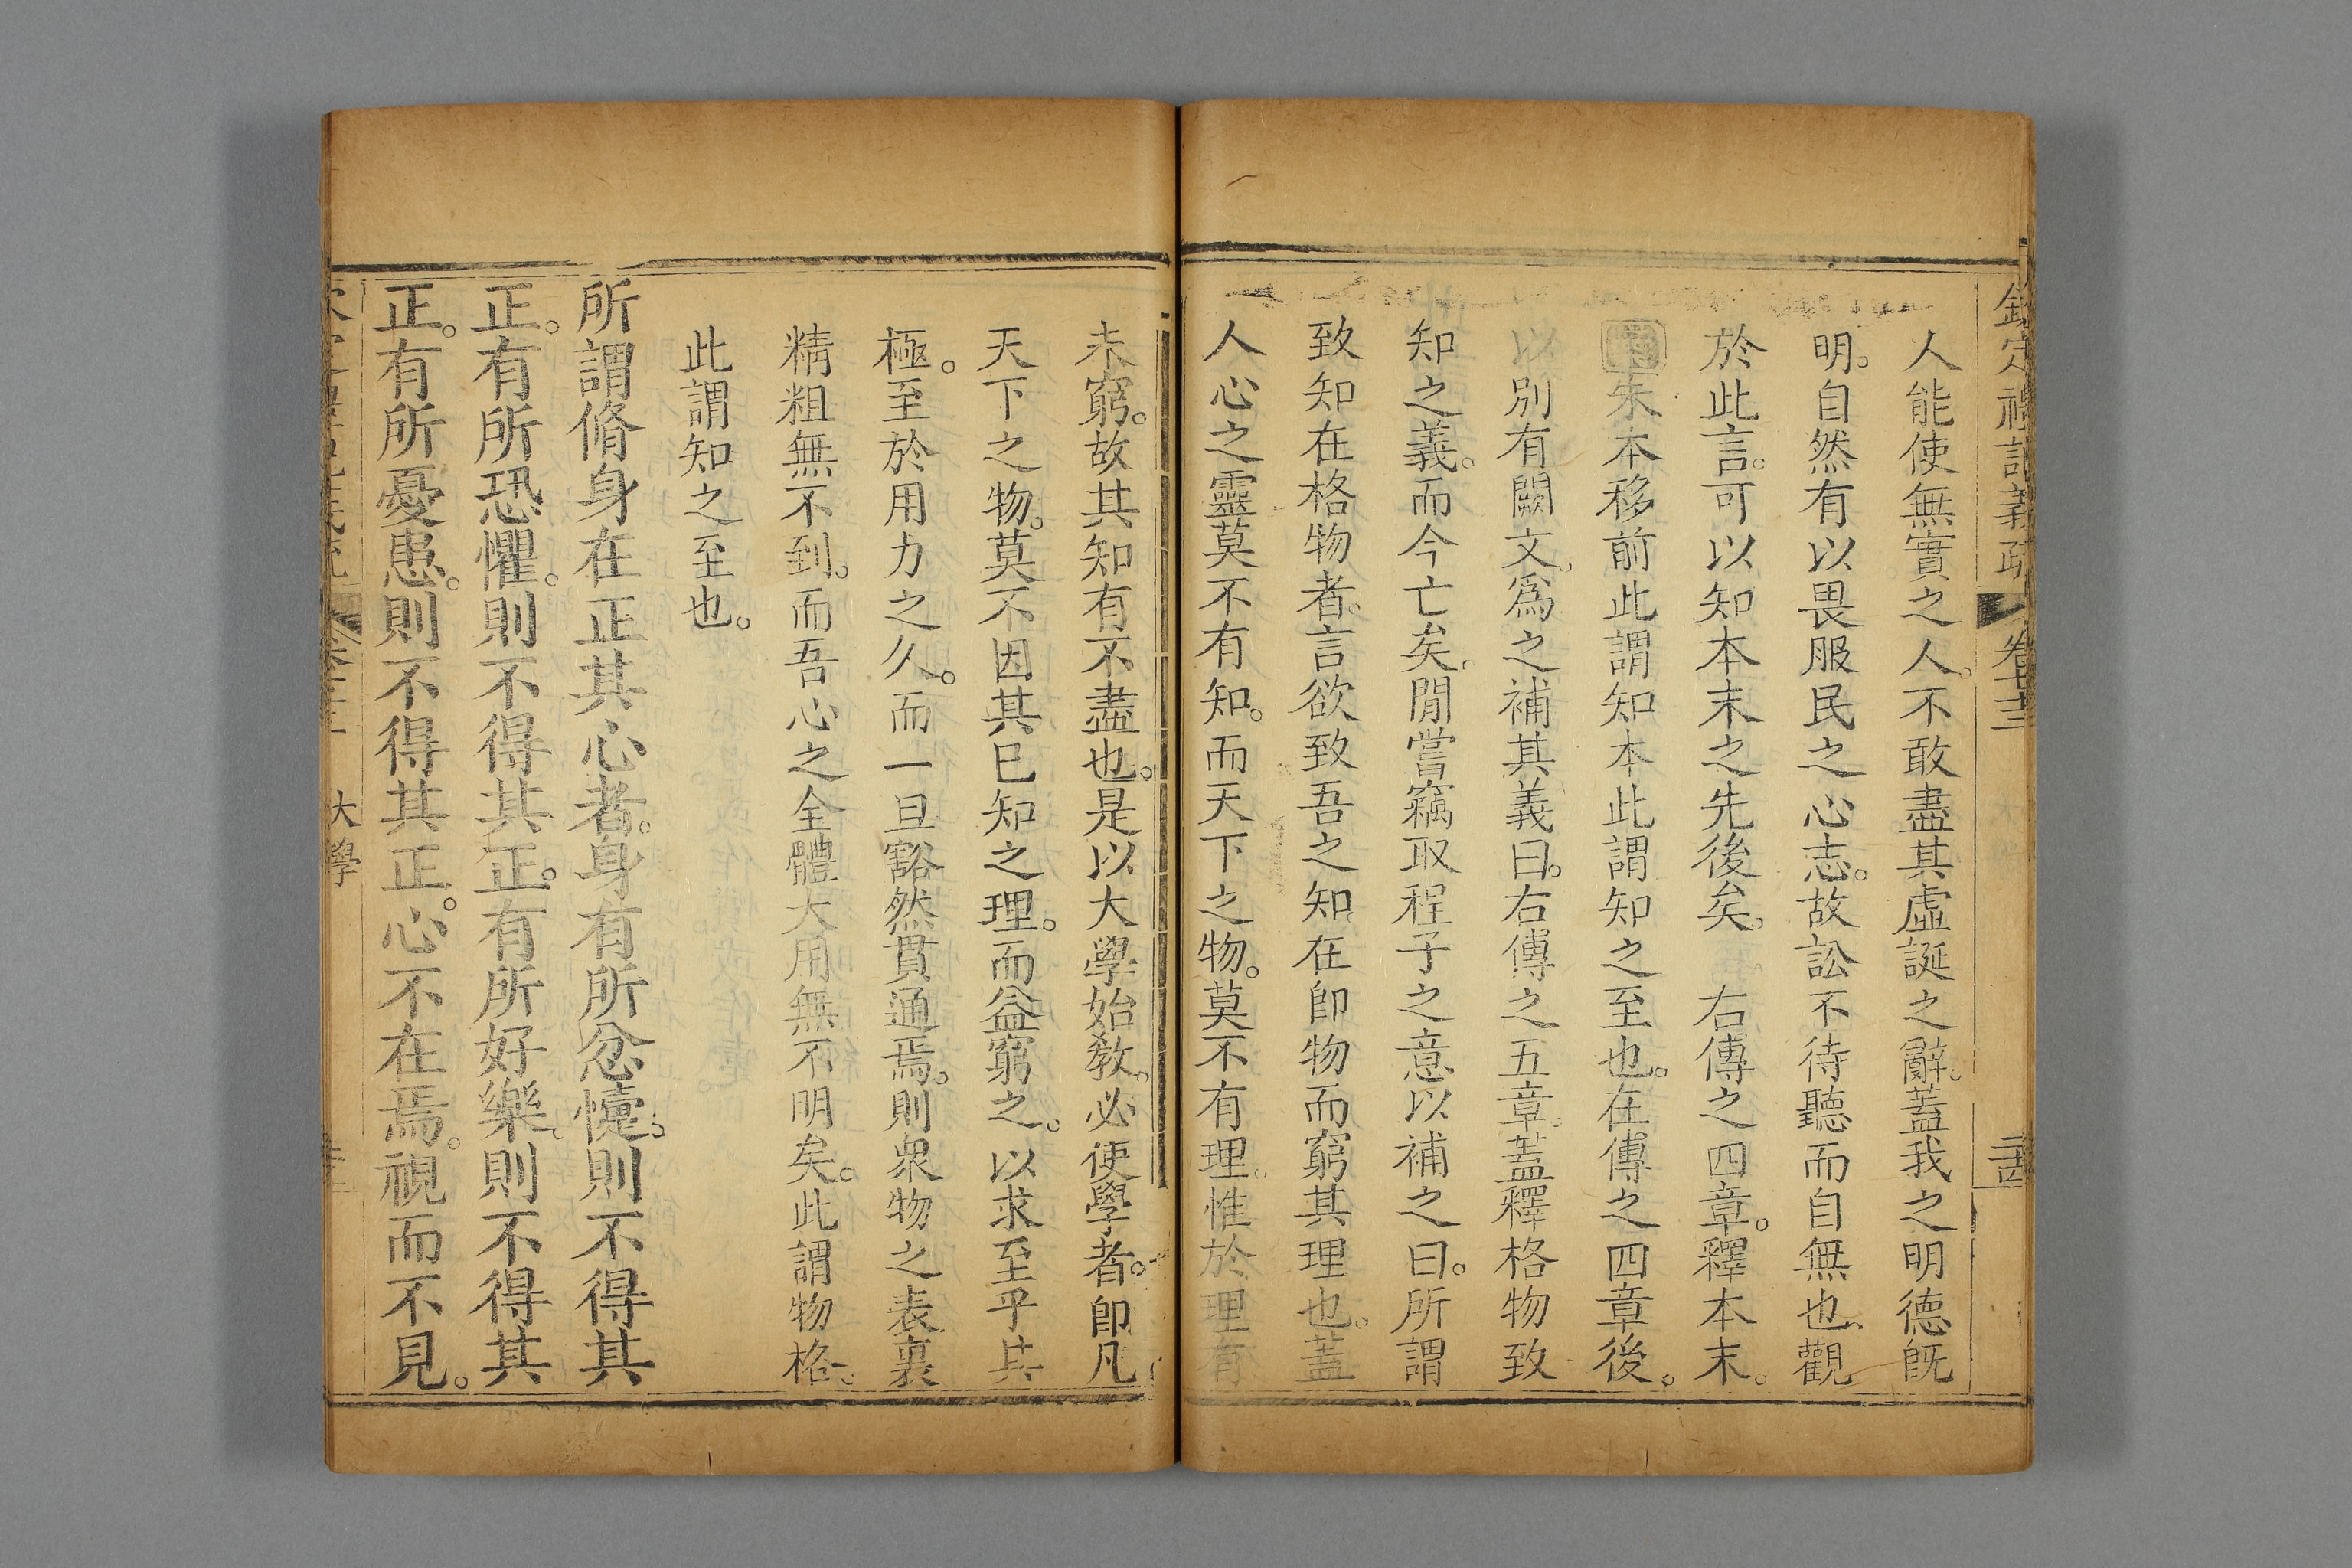 欽定禮記義疏 卷七十三 二十四
人能使無實之人。不敢盡其虛誕之辭。蓋我之明德既
明。自然有以畏服民之心志。故訟不待聽而自無也。觀
於此言。可以知本末之先後矣。 右傳之四章。釋本末。
朱本移前此謂知本此謂知之至也。在傳之四章後。
以別有闕文。爲之補其義曰。右傳之五章。蓋釋格物致
知之義。而今亡矣。閒嘗竊取程子之意以補之曰。所謂
致知在格物者。言欲致吾之知。在卽物而窮其理也。蓋
人心之靈莫不有知。而天下之物。莫不有理。惟於理有
未窮。故其知有不盡也。是以大學始敎。必使學者。卽凡
天下之物。莫不因其已知之理。而益窮之。以求至乎其
極。至於用力之久。而一旦豁然貫通焉。則衆物之表裏
精粗無不到。而吾心之全體大用無不明矣。此謂物格。
此謂知之至也。
所謂脩身在正其心者。身有所忿懥。則不得其
正。有所恐懼。則不得其正。有所好樂。則不得其
正。有所憂患。則不得其正。心不在焉。視而不見。
大學